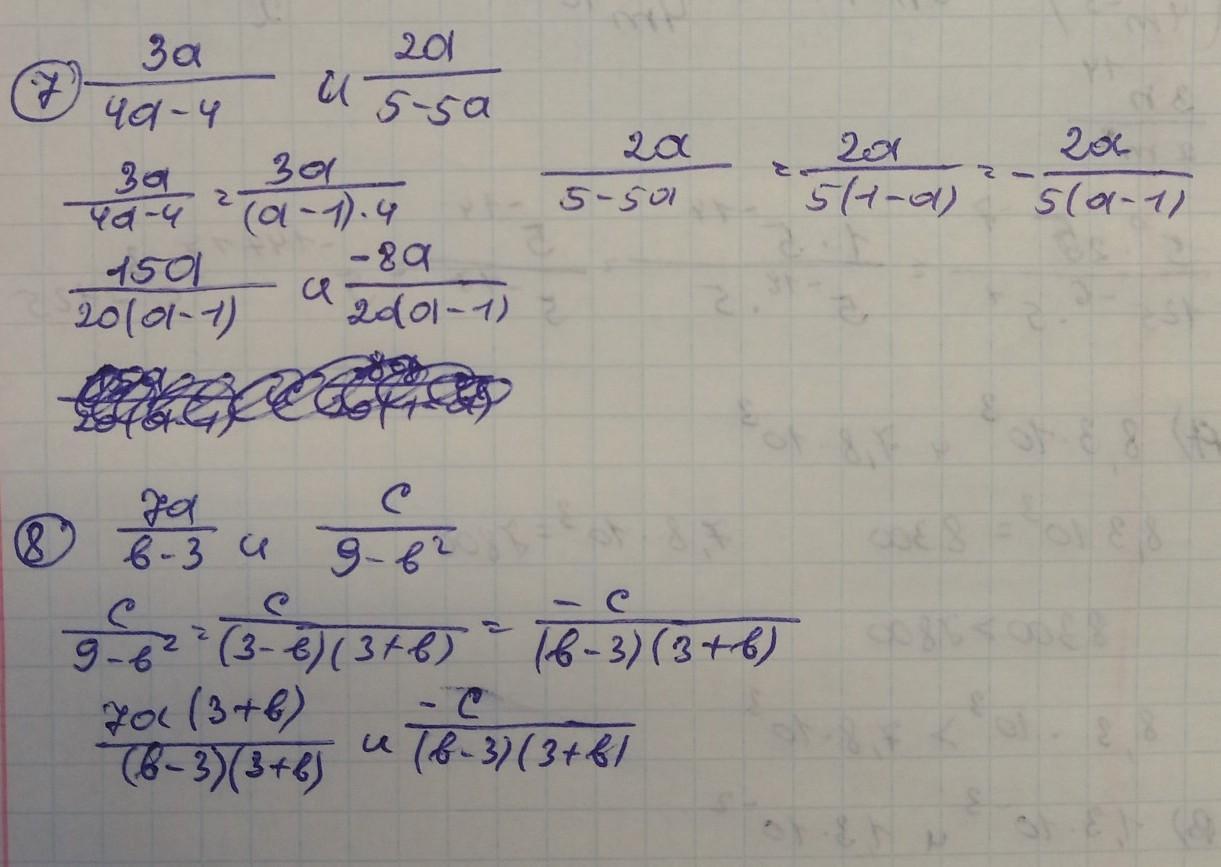 7) 3a/(4a-4) и 2a/(5-5a)
3a/(4a-4) = 3a/((a-1)·4) 2a/(5-5a) = 2a/(5(1-a)) = -2a/(5(a-1))
15a/(20(a-1)) и -8a/(20(a-1))
8) 7a/(в-3) и c/(9-в²)
c/(9-в²) = c/((3-в)(3+в)) = -c/((в-3)(3+в))
7a(3+в)/((в-3)(3+в)) и -c/((в-3)(3+в))